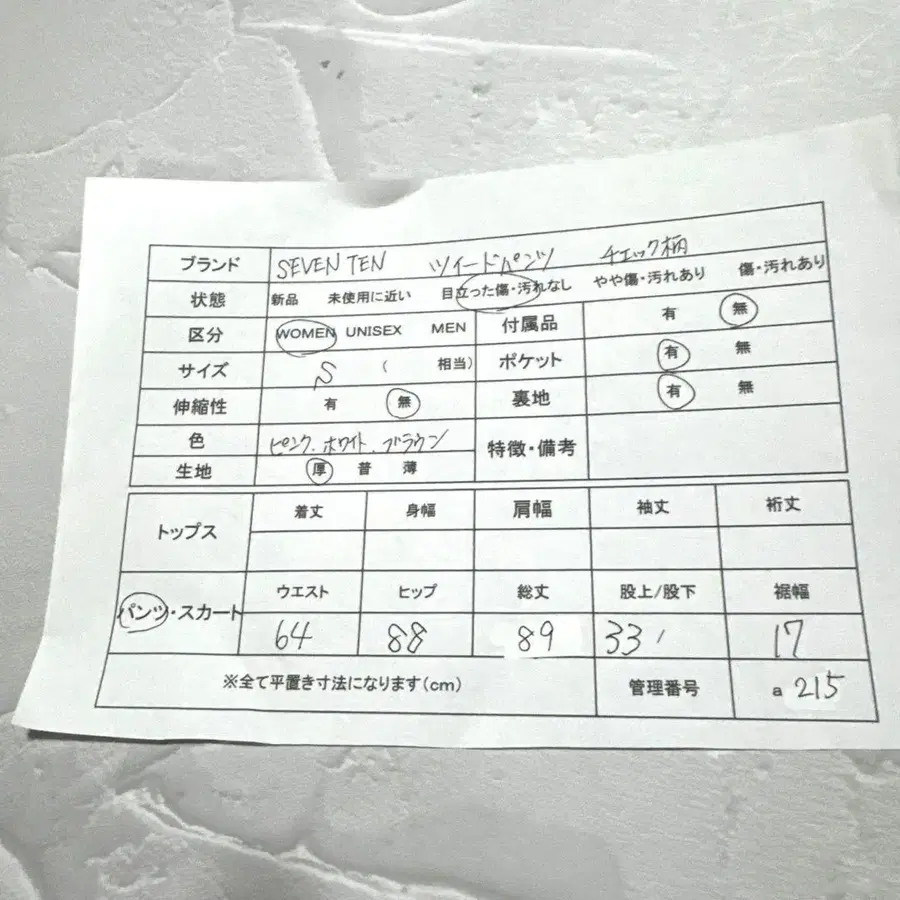 ブランド SEVEN TEN ツイードパンツ チェック柄
状態 新品 未使用に近い 目立った傷・汚れなし やや傷・汚れあり 傷・汚れあり
区分 WOMEN UNISEX MEN 付属品 有 無
サイズ S ( 相当) ポケット 有 無
伸縮性 有 無 裏地 有 無
色 ピンク、ホワイト、ブラウン 特徴・備考
生地 厚 普 薄
トップス 着丈 身幅 肩幅 袖丈 裄丈
パンツ・スカート ウエスト ヒップ 総丈 股上/股下 裾幅
64 88 89 33 17
※全て平置き寸法になります(cm) 管理番号 a 215